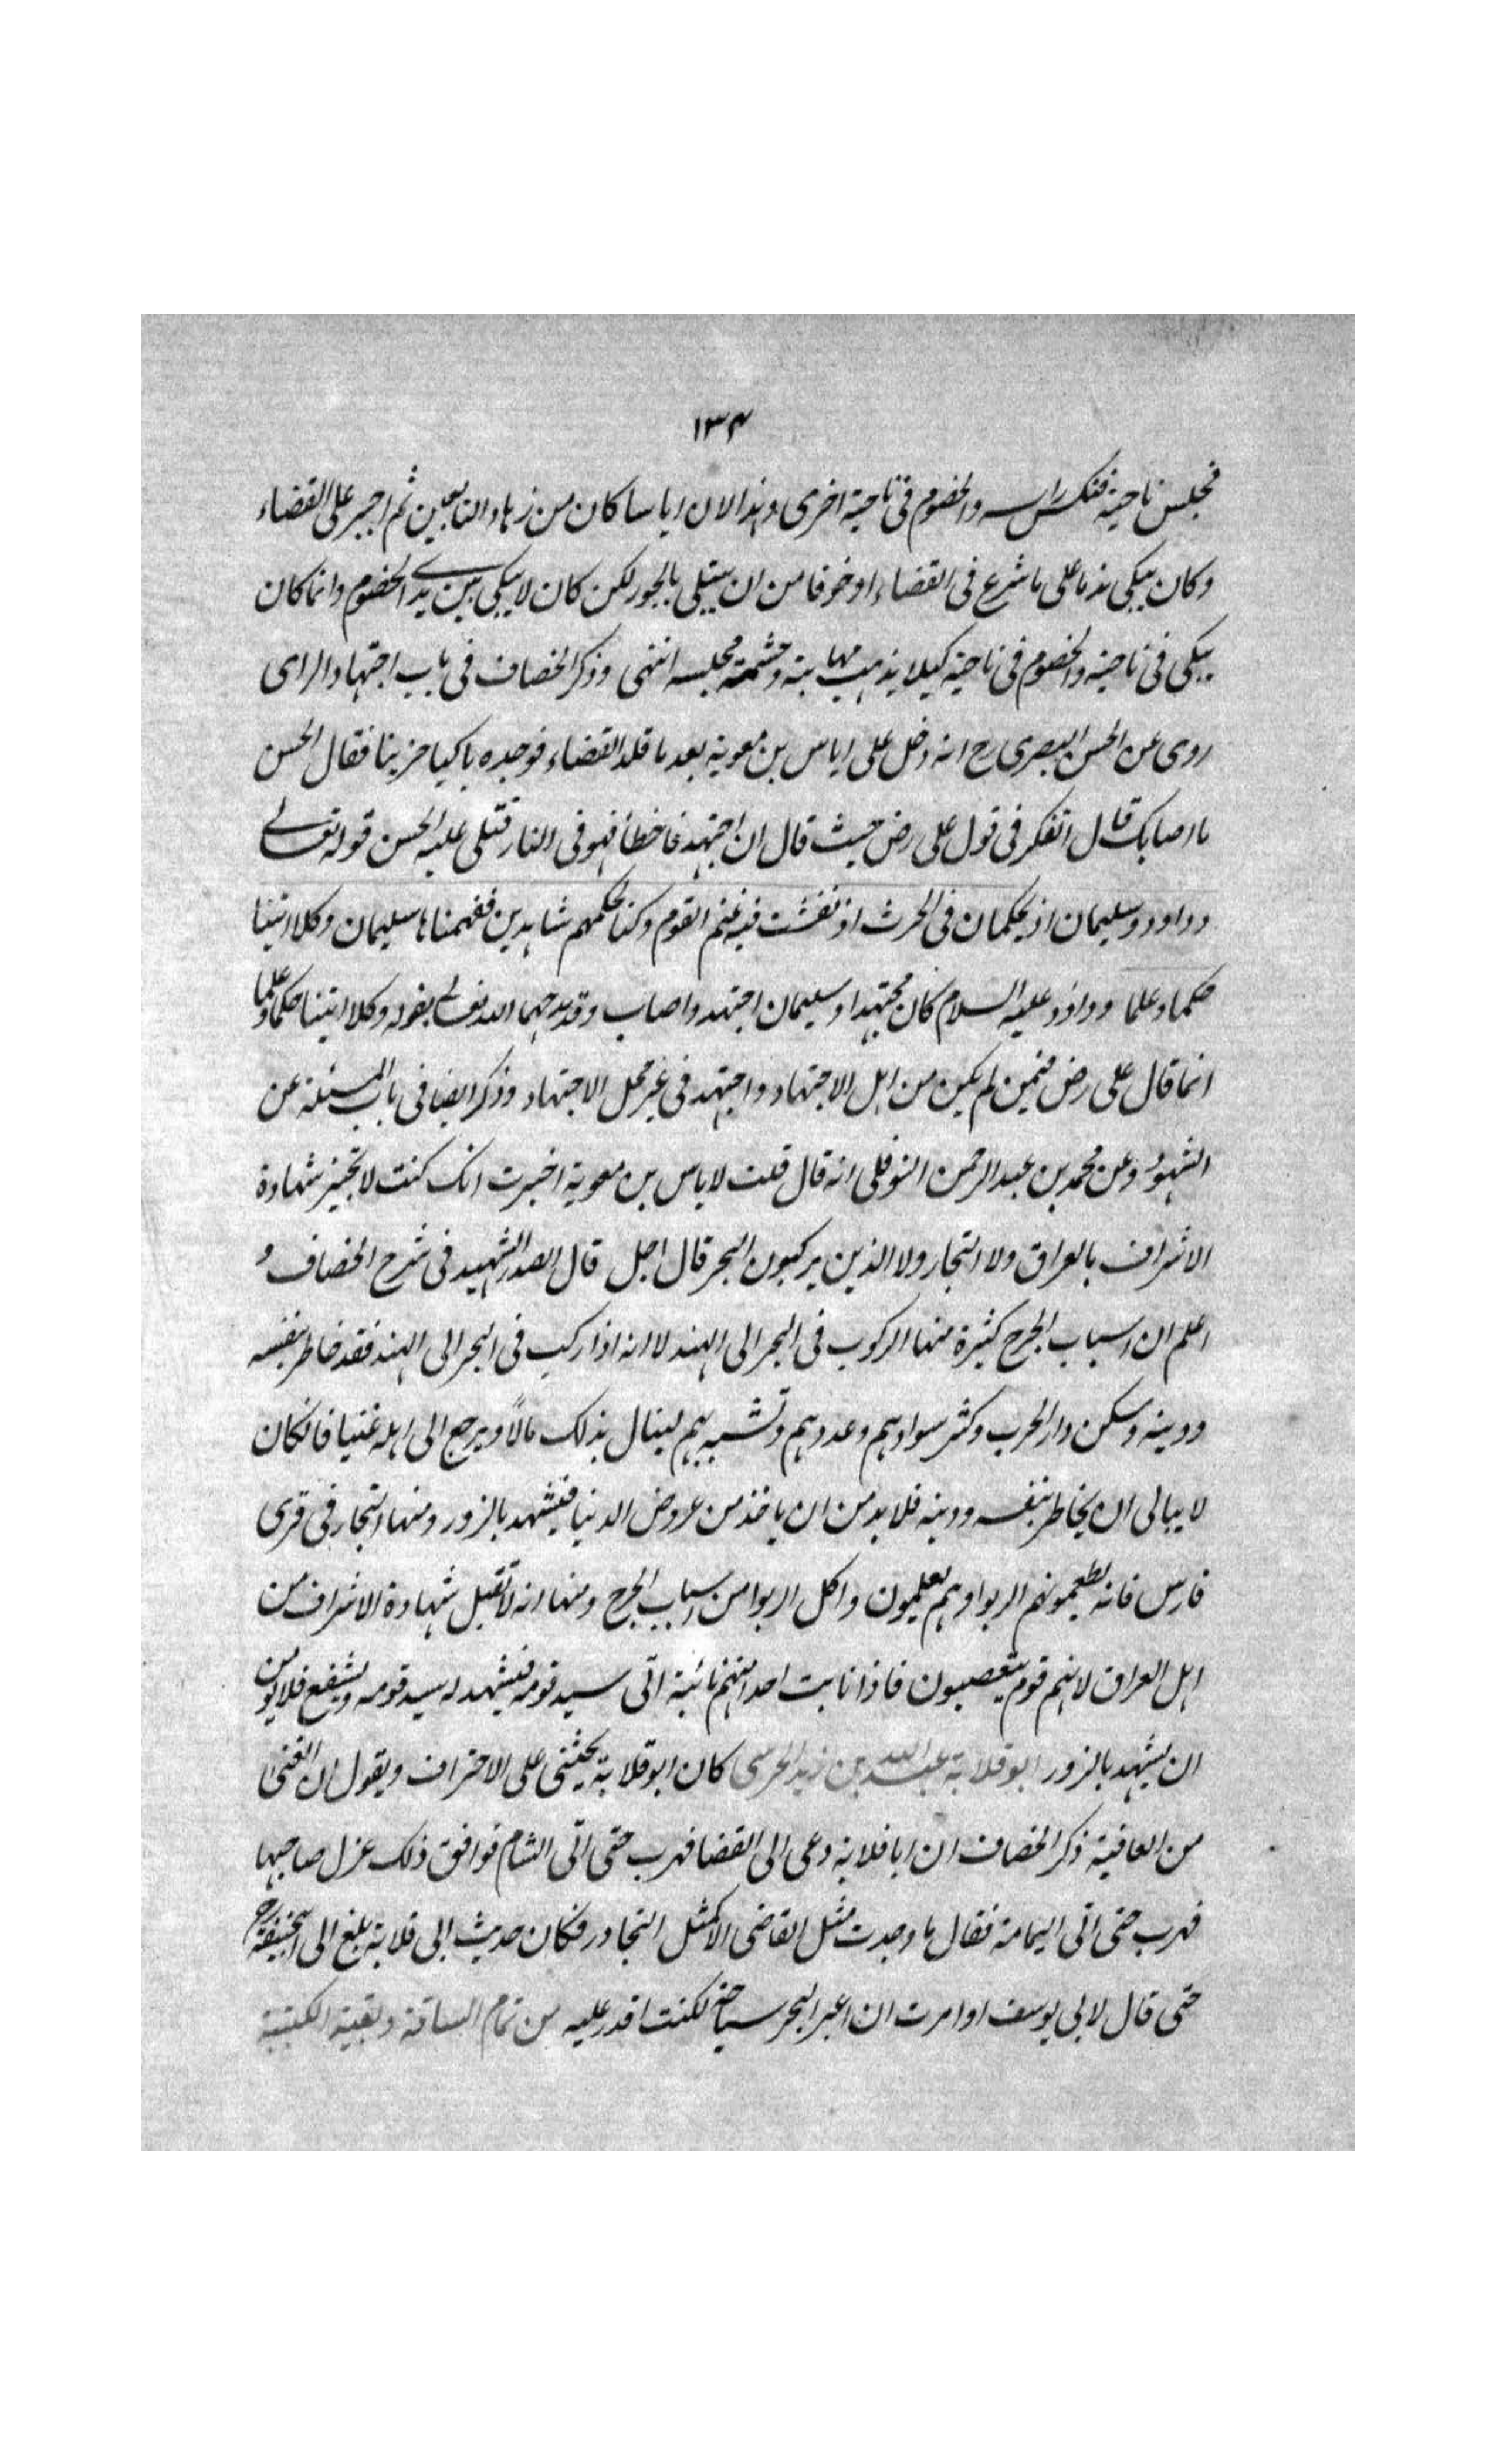 ١٣٤
فجلس ناحية فنكس راسه والخصوم فى ناحية اخرى وهذا لان اياسا كان من زهاد التابعين ثم اجبر على القضاء
وكان يبكى ندما على ما شرع فى القضاء او خوفا من ان يبتلى بالجور لكن كان لا يبكى بين يدى الخصوم وانما كان
يبكى فى ناحية والخصوم فى ناحية كيلا يذهب مهابته وحشمة مجلسه انتهى وذكر الخصاف فى باب اجتهاد الراى
روى عن الحسن البصرى رح انه دخل على اياس بن معوية بعد ما قلد القضاء فوجده باكيا حزينا فقال الحسن
ما اصابك قال اتفكر فى قول على رض حيث قال ان اجتهد فاخطأ فهو فى النار فتلى عليه الحسن قوله تعالى
وداود وسليمان اذ يحكمان فى الحرث اذ نفشت فيه غنم القوم وكنا لحكمهم شاهدين ففهمناها سليمان وكلا اتينا
حكما وعلما وداود عليه السلام كان مجتهدا وسليمان اجتهد واصاب وقد مدحهما الله تعالى بقوله وكلا اتينا حكما وعلما
انما قال على رض فيمن لم يكن من اهل الاجتهاد واجتهد فى غير محل الاجتهاد وذكر ايضا فى باب المسئلة عن
الشهود وعن محمد بن عبد الرحمن النوفلى انه قال قلت لاياس بن معوية اخبرت انك كنت لا تجيز شهادة
الاشراف بالعراق ولا التجار ولا الذين يركبون البحر قال اجل قال الصدر الشهيد فى شرح الخصاف و
اعلم ان اسباب الجرح كثيرة منها الركوب فى البحر الى الهند لانه اذا ركب فى البحر الى الهند فقد خاطر بنفسه
ودينه وسكن دار الحرب وكثر سوادهم وعددهم وتشبه بهم لينال بذلك مالاً ويرجع الى اهله غنيا فاذا كان
لا يبالى ان يخاطر بنفسه ودينه فلا بد من ان ياخذ من عروض الدنيا فيشهد بالزور ومنها التجار فى قرى
فارس فانه يطعمونهم الربوا وهم يعلمون واكل الربوا من اسباب الجرح ومنها انه لا تقبل شهادة الاشراف من
اهل العراق لانهم قوم يتعصبون فاذا نابت احدا منهم نائبة اتى سيد قومه فيشهد له سيد قومه ويشفع فلا يؤمن
ان يشهد بالزور ابو قلابة عبد الله بن زيد الجرمى كان ابو قلابة يحثنى على الاحتراف ويقول ان الغنى
من العافية ذكر الخصاف ان ابا قلابة دعى الى القضا فهرب حتى اتى الشام فوافق ذلك عزل صاحبها
فهرب حتى اتى اليمامة فقال ما وجدت مثل القاضى الا كمثل فكان حديث ابى قلابة بلغ الى ابيحنيفة رح
حتى قال لابى يوسف لو امرت ان اعبر البحر سباحة لكنت اقدر عليه من تمام الساقة وبقية الكتيبة